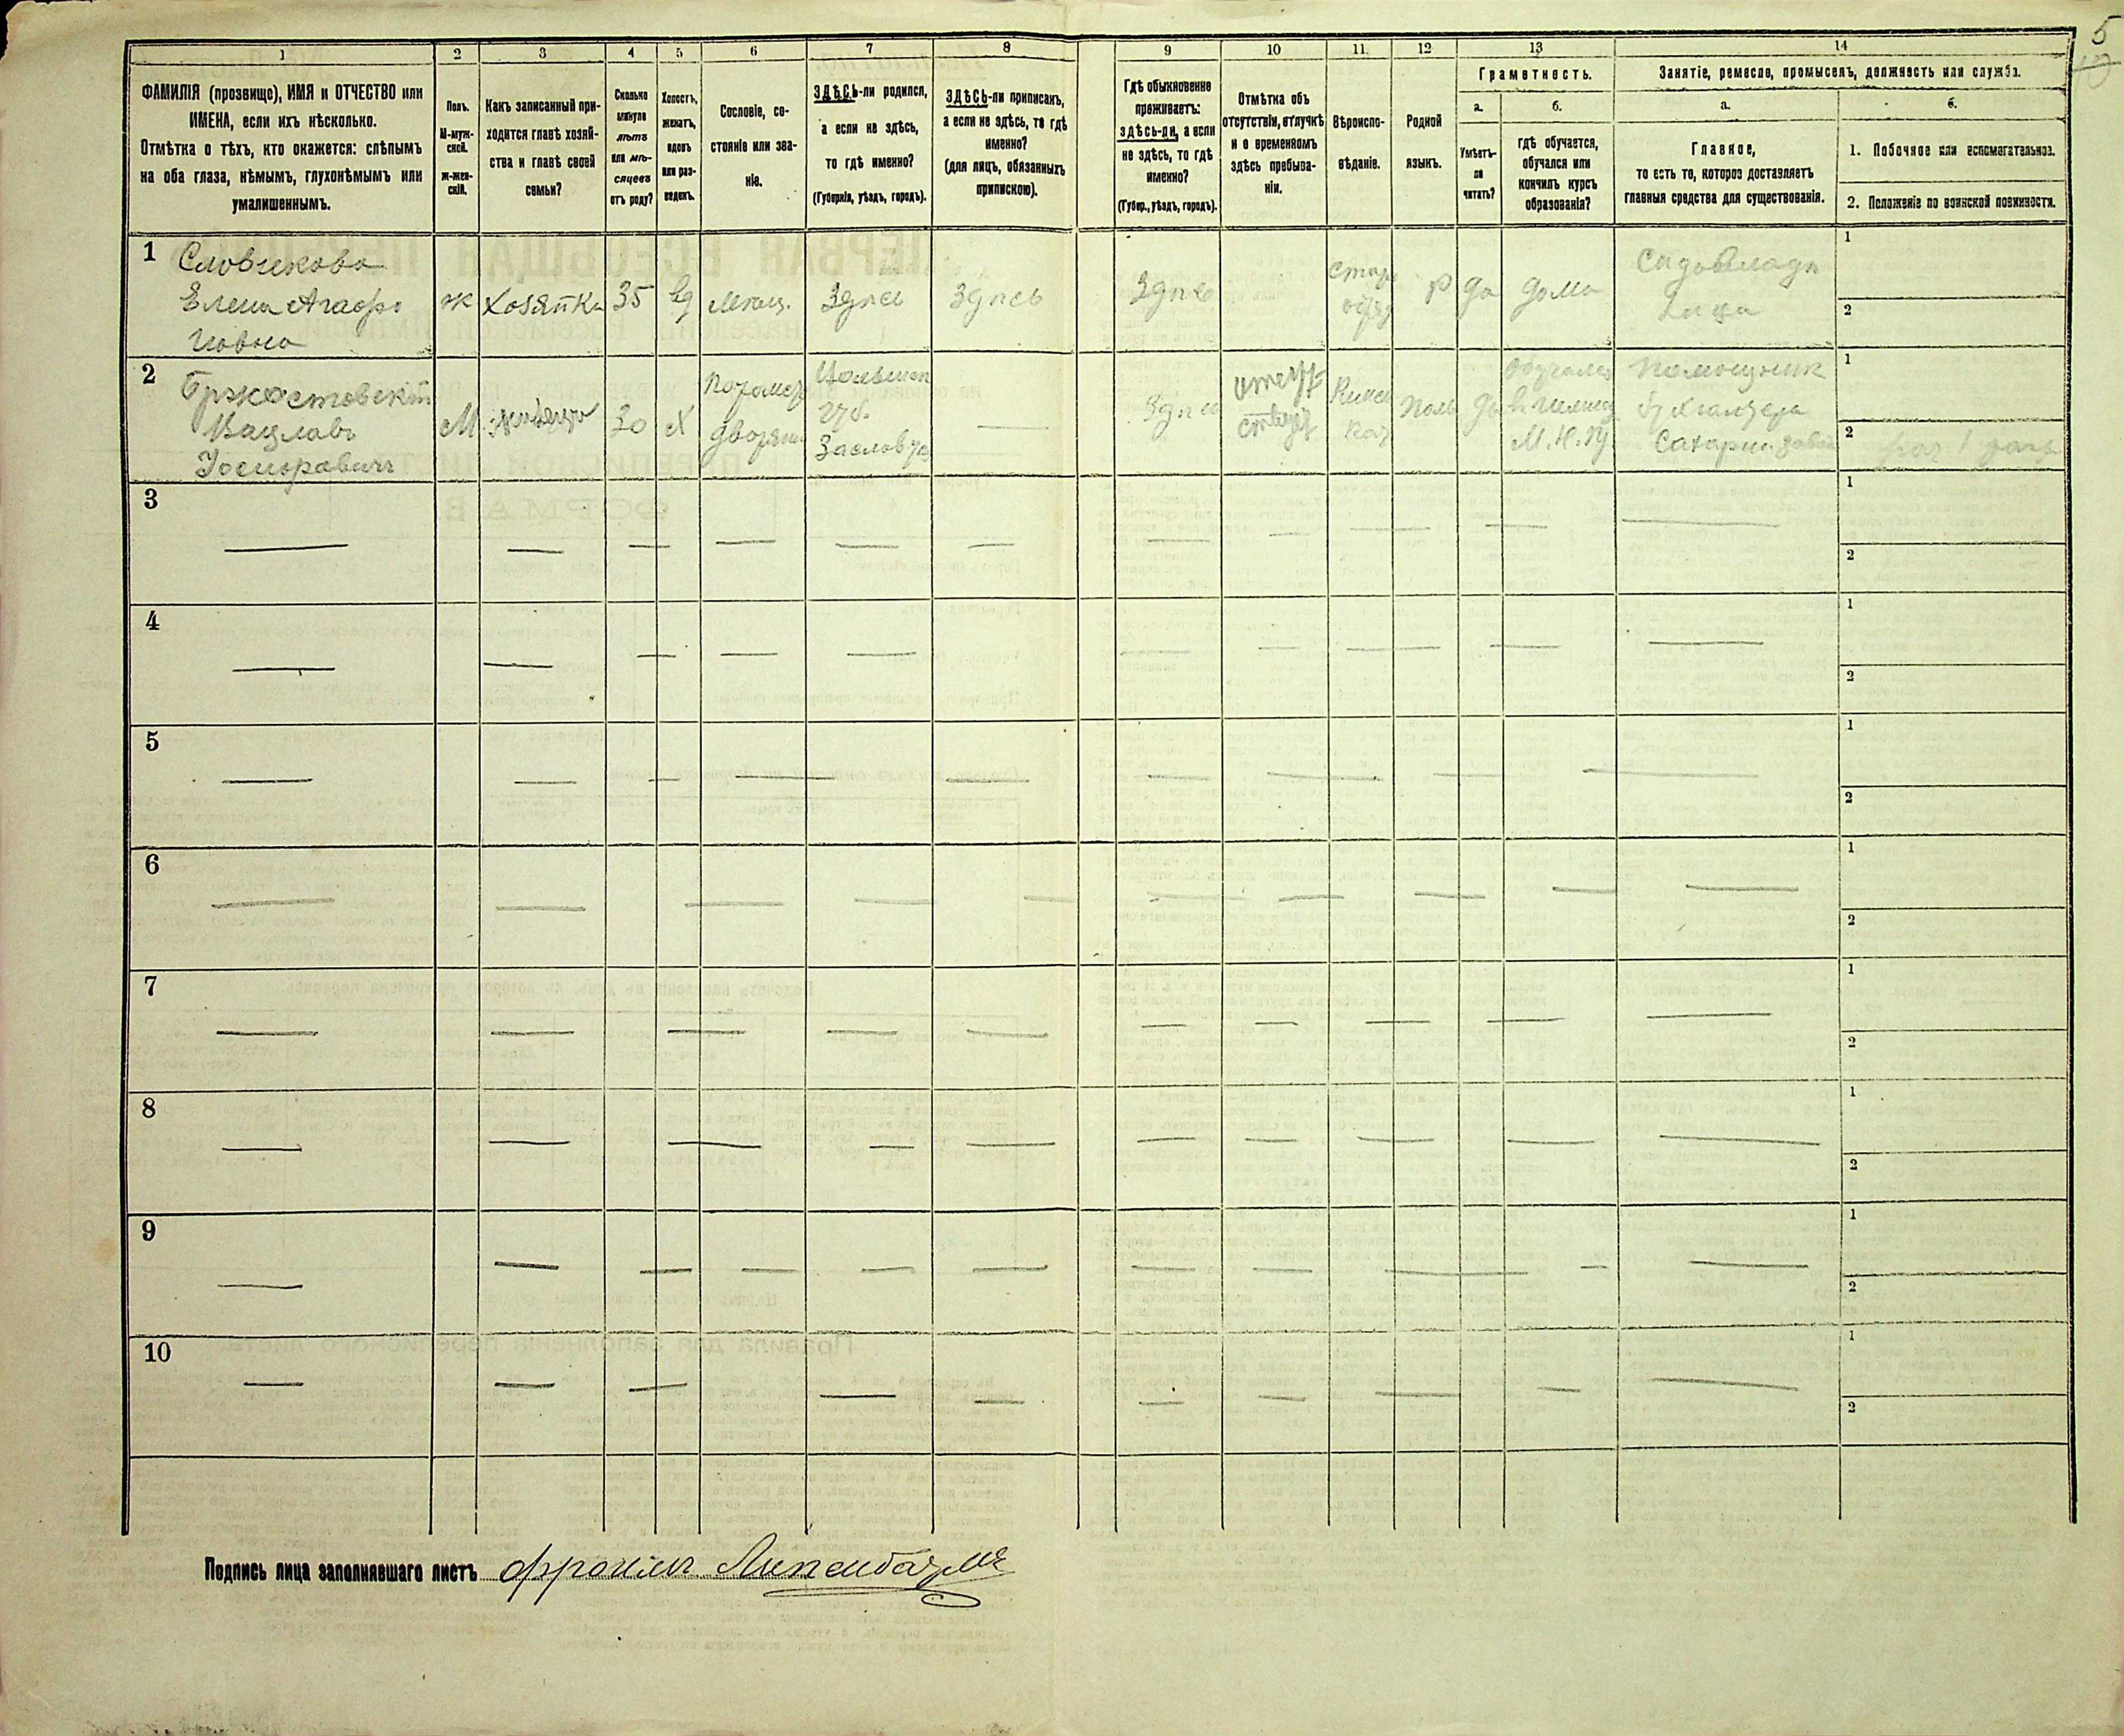 5
10
1
2
3
4
5
6
7
8
9
10
11.
12
13
14
ФАМИЛІЯ (прозвище), ИМЯ и ОТЧЕСТВО или
ИМЕНА, если ихъ нѣсколько.
Отмѣтка о тѣхъ, кто окажется: слѣпымъ
на оба глаза, нѣмымъ, глухонѣмымъ или
умалишеннымъ.
Полъ.
М-муж-
ской.
ж-жен-
скій.
Какъ записанный при-
ходится главѣ хозяй-
ства и главѣ своей
семьи?
Сколько
минуло
лѣтъ
или мѣ-
сяцевъ
отъ роду?
Холостъ,
женатъ,
вдовъ
или раз-
веденъ.
Сословіе, со-
стояніе или зва-
ніе.
ЗДѢСЬ-ли родился,
а если не здѣсь,
то гдѣ именно?
(Губернія, уѣздъ, городъ).
ЗДѢСЬ-ли приписанъ,
а если не здѣсь, то гдѣ
именно?
(для лицъ, обязанныхъ
припискою).
Гдѣ обыкновенно
проживаетъ:
здѣсь-ли, а если
не здѣсь, то гдѣ
именно?
(Губер., уѣздъ, городъ).
Отмѣтка объ
отсутствіи, отлучкѣ
и о временномъ
здѣсь пребыва-
ніи.
Вѣроиспо-
вѣданіе.
Родной
языкъ.
Грамотность.
а.
Умѣетъ-
ли
читать?
б.
гдѣ обучается,
обучался или
кончилъ курсъ
образованія?
Занятіе, ремесло, промыселъ, должность или служба.
а.
Главное,
то есть то, которое доставляетъ
главныя средства для существованія.
б.
1. Побочное или вспомогательное.
2. Положеніе по воинской повинности.
1
Словикова
Елена Агафо
новна
ж
Хозяйка
35
вд
мѣщ.
Здѣсь
Здѣсь
Здѣсь
стар
обряд
Р
да
дома
Садовладѣ
лица
1
2
2
Бржостовскій
Вацлавъ
Іосифовичъ
М
30
Х
потомст
дворянин
Волынск
губ.
Заслав у
Здѣсь
Римск
кат
поль
да
обучался
въ гимназ
помощник
бухгалтера
Сахарн. завод
1
2
3
1
2
4
1
2
5
1
2
6
1
2
7
1
2
8
1
2
9
1
2
10
1
2
Подпись лица заполнявшаго листъ